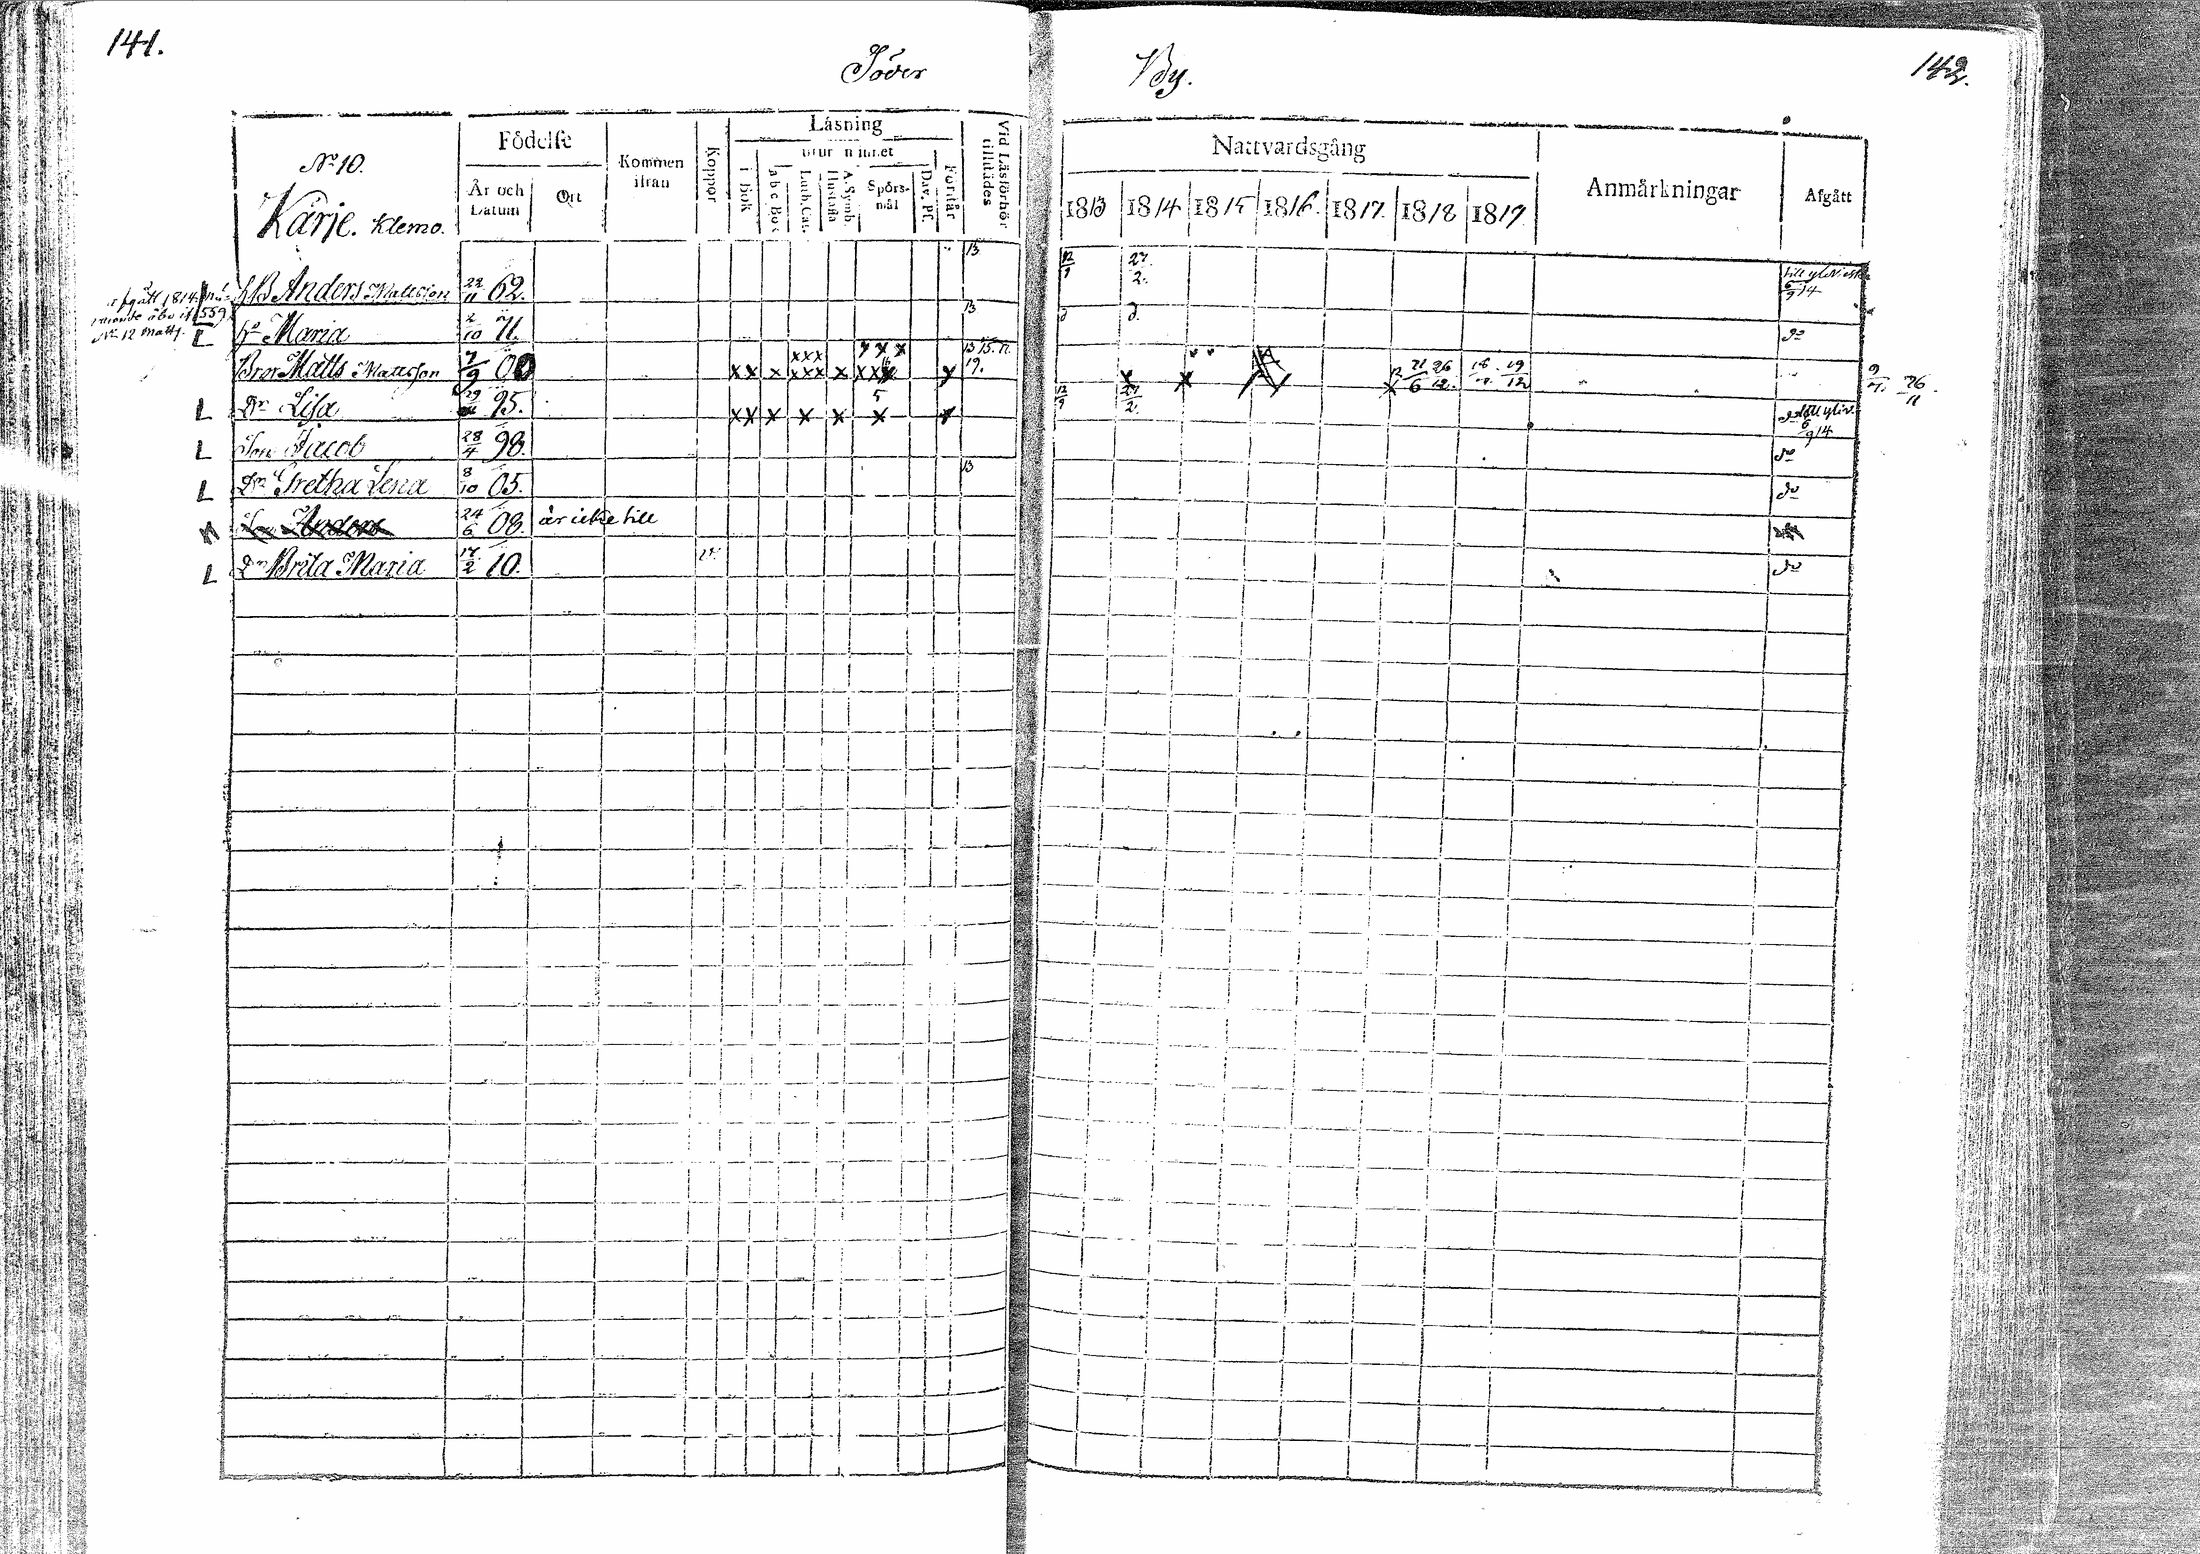 141.
Söver By.
142.
No 10.
Kärje. Klemo.
Födelse
År och Datum
Ort
Kommen ifrån
Koppor
Läsning
utur minnet
i bok
a b c Bok
Luth. Cat.
Hustafla
A. Symb.
Spörsmål
Dav. Ps.
Förstår
Vid Läsförhör tillstädes
Nattvardsgång
1813 1814 1815 1816. 1817. 1818 1819
Anmärkningar
Afgått
afgått 1814
åbo
559
No 12 Matts.
Anders Mattsson 22/11 62. 13 12/9 27/2. 6/9 14
L Hu Maria 2/10 71. 13 d. d. do
Bror Matts Mattsson 7/9 00 x x x x x x x x x x 13 15. 17. 19. x x 21/6 26/12. 19/12 26/11
L Dr Lisa 29 95. 5 x x x x x x x 12/9 27/2. 6/9 14
L Son Jacob 28/4 98. do
L Dr Gretha Lena 8/10 05. 13 do
Son Anders 24/6 08. är icke till
L Dr Brita Maria 17/2 10. do